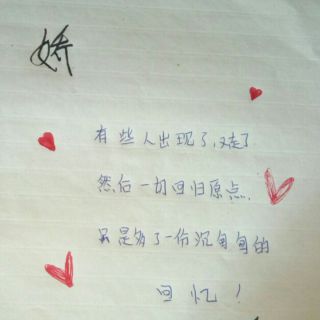 娇
有些人出现了,又走了
然后一切回归原点.
只是多了一份沉甸甸的
回忆!